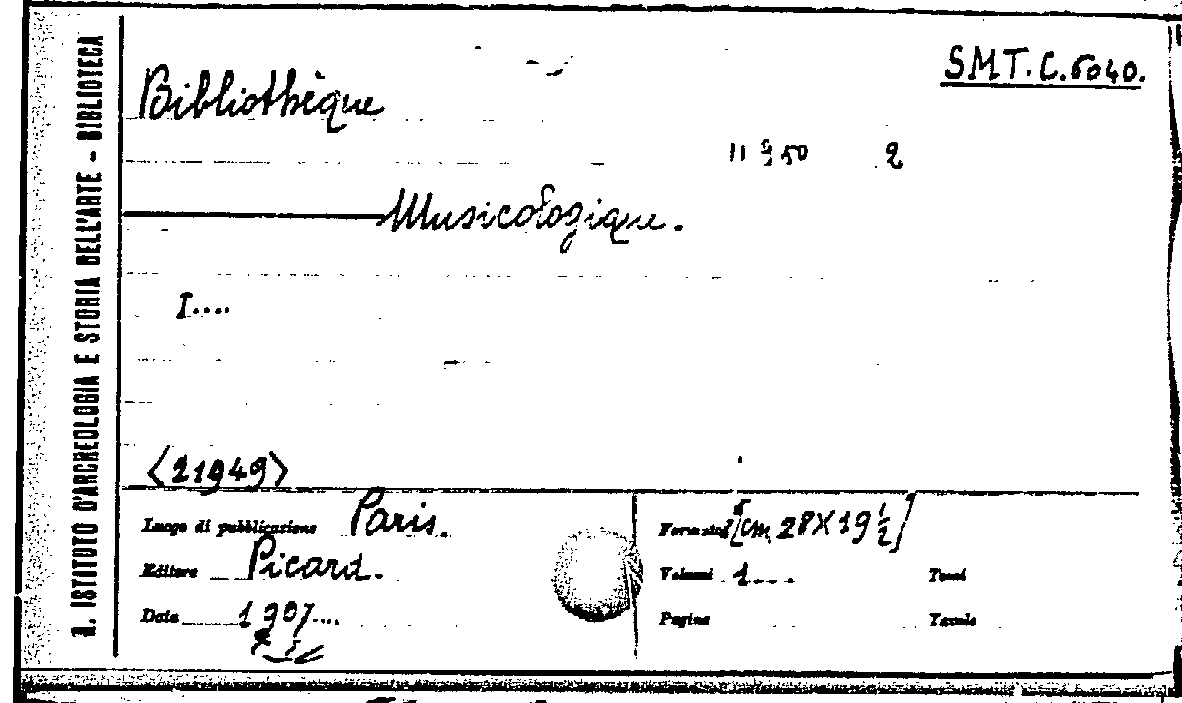 R. ISTITUTO D'ARCHEOLOGIA E STORIA DELL'ARTE - BIBLIOTECA
S.M.T. C. 6040.
Bibliothèque
11950 2
Musicologique.
I....
<21949>
Luogo di pubblicazione Paris.
Editore Picard.
Data 1907....
Formato [cm 28X19 1/2]
Volumi 1.... Tomi
Pagine Tavole